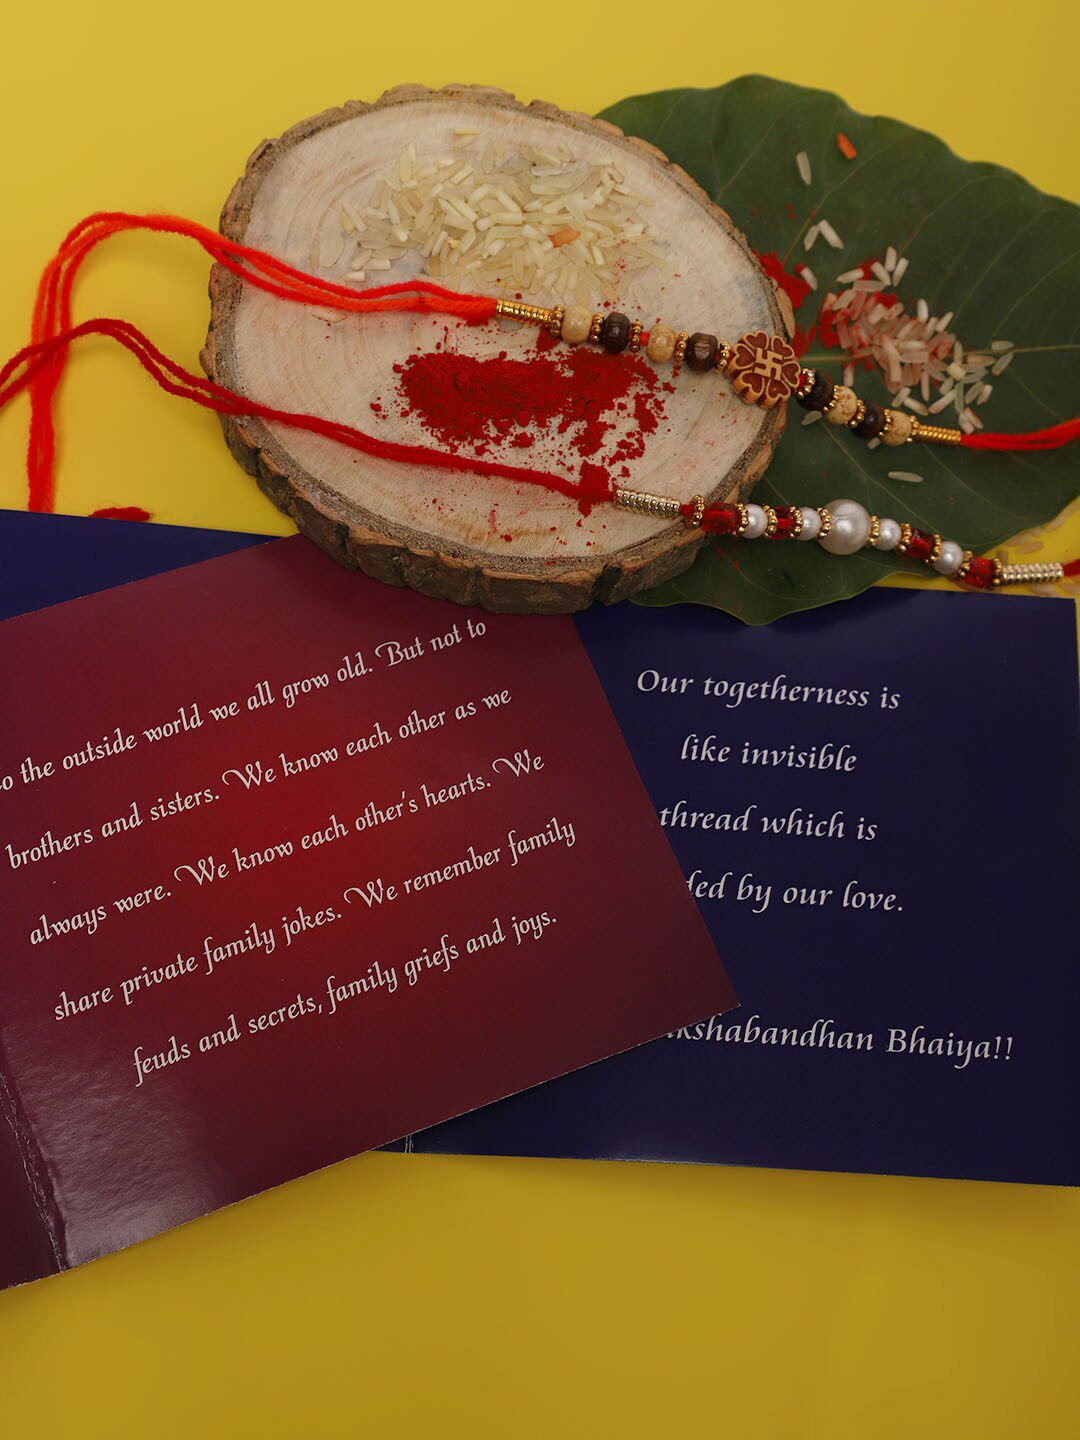 the outside world we all grow old. But not to
brothers and sisters. We know each other as we
always were. We know each other's hearts. We
share private family jokes. We remember family
feuds and secrets, family griefs and joys.
Our togetherness is
like invisible
thread which is
by our love.
Bhaiya!!